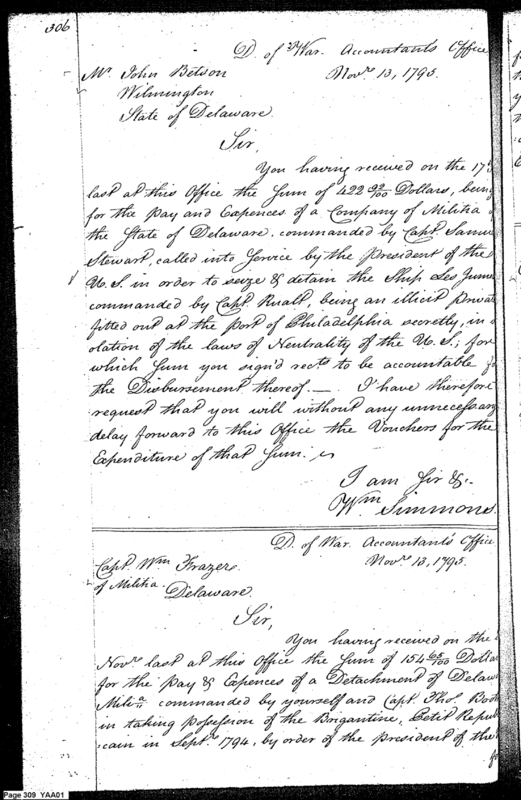 306
D. of War. Accountant's Office
Mr. John Betson Novr. 13, 1795.
Wilmington
State of Delaware.
Sir,
You having received on the 17th
last at this Office the Sum of 422 92/100 Dollars, being
for the pay and Expences of a Company of Militia
the State of Delaware. commanded by Capt. Samu
Stewart, called into Service by the President of the
U. S. in order to seize & detain the Ship Les Jume
commanded by Capt. Rualt, being an illicit privat
fitted out at the port of Philadelphia secretly, in
olation of the laws of Neutrality of the U. S.; for
which Sum you sign'd rects. to be accountable
the Disbursement thereof. — I have therefore
request that you will without any unnecessary
delay forward to this Office the Vouchers for the
Expenditure of that Sum.
I am Sir &.
Wm Simmons.
D. of War. Accountant's Office
Capt. Wm Frazer Novr. 13, 1795.
of Militia. Delaware.
Sir,
You having received on the
Novr. last at this Office the Sum of 154 65/100 Dolla
for the pay & Expences of a Detachment of Delaw
Milita. commanded by yourself and Capt. Thos. Boot
in taking possession of the Brigantine, Petit Repub
cain in Septr. 1794, by order of the president of the
Page 309 YAA01